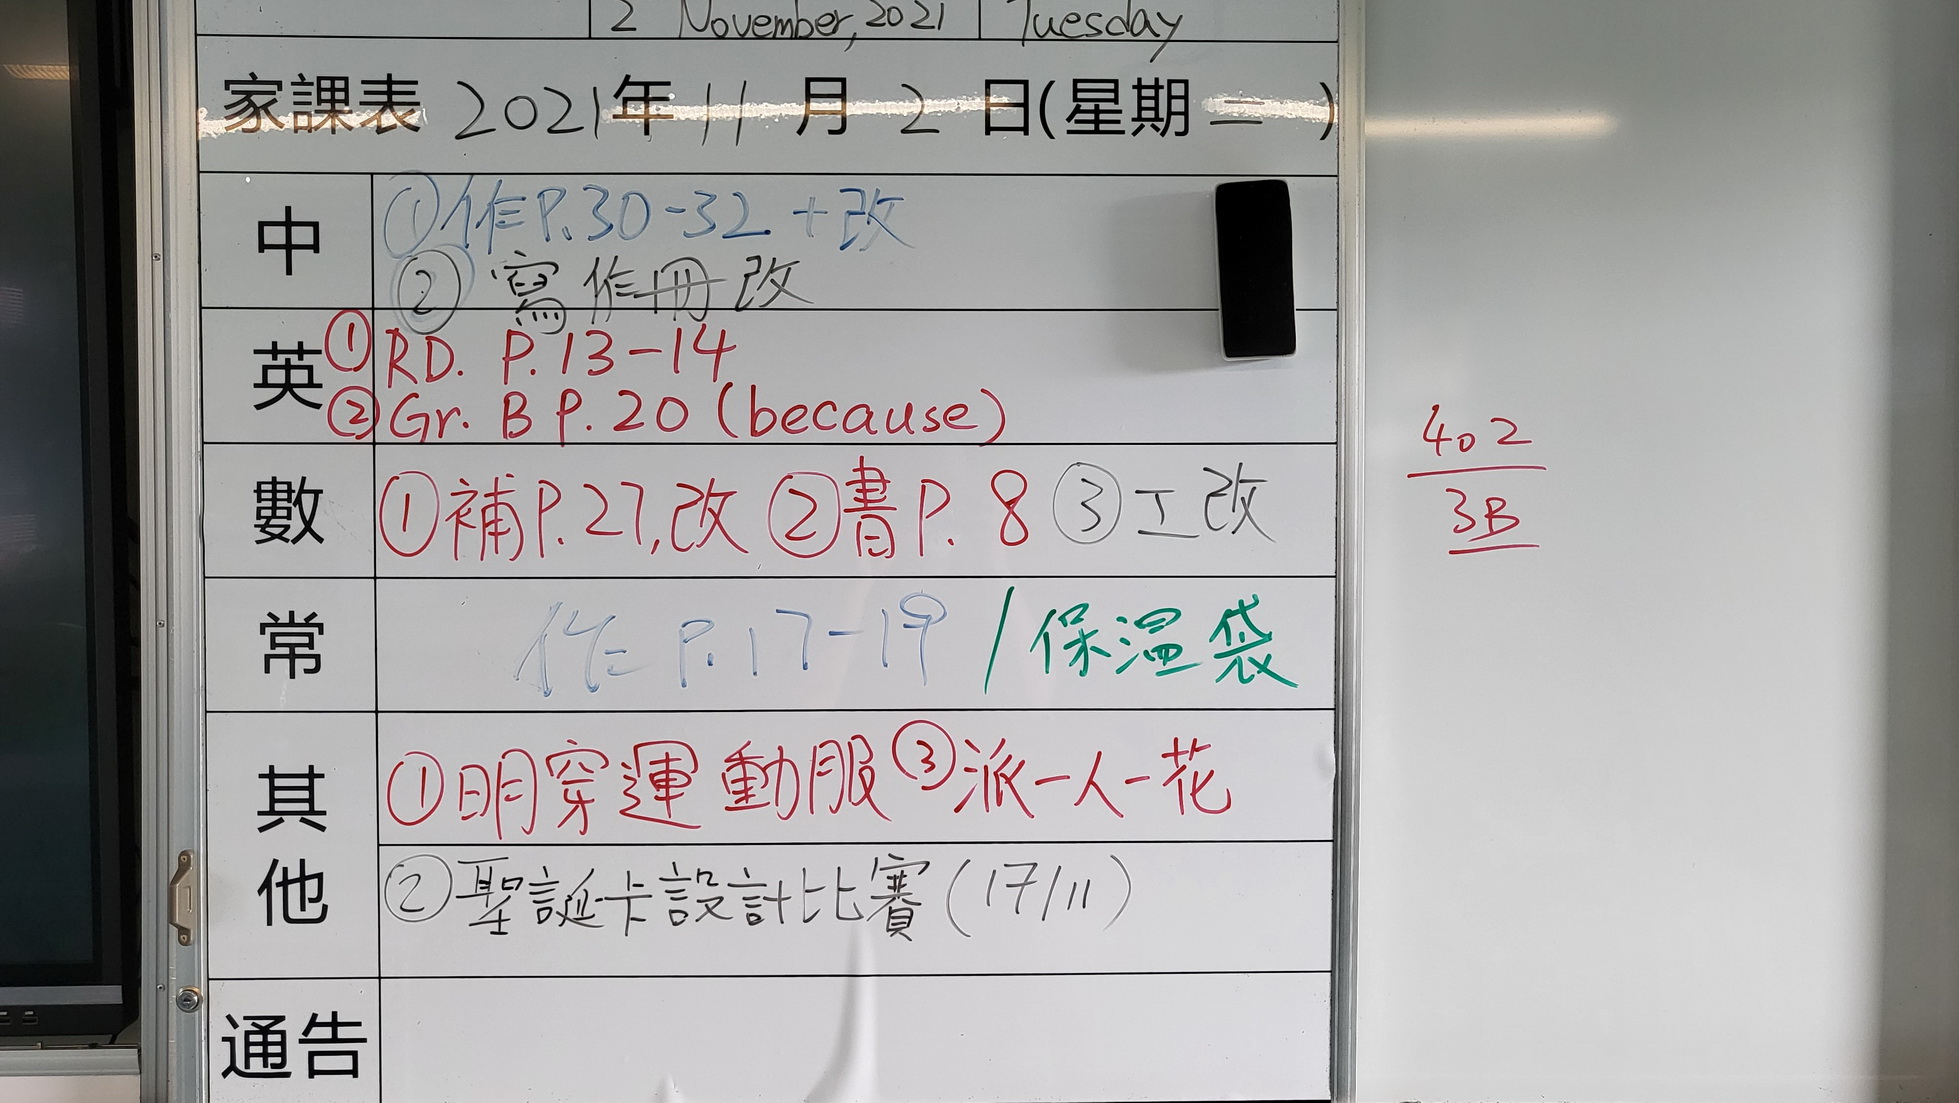 2 November, 2021 Tuesday
家課表 2021年 11 月 2 日(星期二)
中
①作P.30-32 + 改
②寫作冊改
英
①RD. P.13-14
②Gr. B P.20 (because)
數
①補P.27,改 ②書P. 8 ③工改
常
作 P.17-19 / 保溫袋
其他
①明穿運動服 ③派一人一花
②聖誕卡設計比賽(17/11)
通告
402
3B